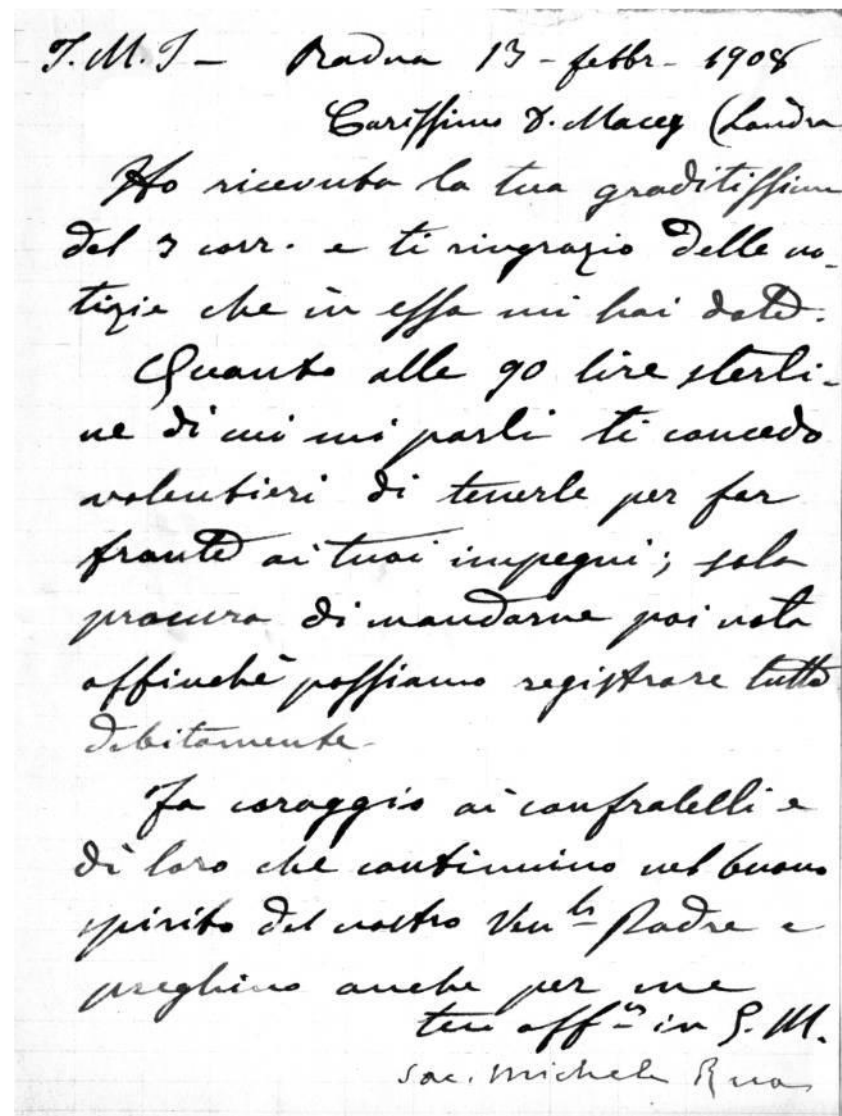 J. M. J - Padova 13 - febbr - 1908
Carissimo D. Macey (Londra
Ho ricevuto la tua graditissima
del 3 corr. e ti ringrazio delle no-
tizie che in essa mi hai dato.
Quanto alle 90 lire sterli-
ne di cui mi parli ti concedo
volentieri di tenerle per far
fronte ai tuoi impegni; solo
procura di mandarne poi nota
affinchè possiamo registrare tutto
debitamente.
Fa coraggio ai confratelli e
di loro che continuino nel buono
spirito del nostro Ven.le Padre e
preghino anche per me
tuo aff.mo in G. M.
Sac. Michele Rua